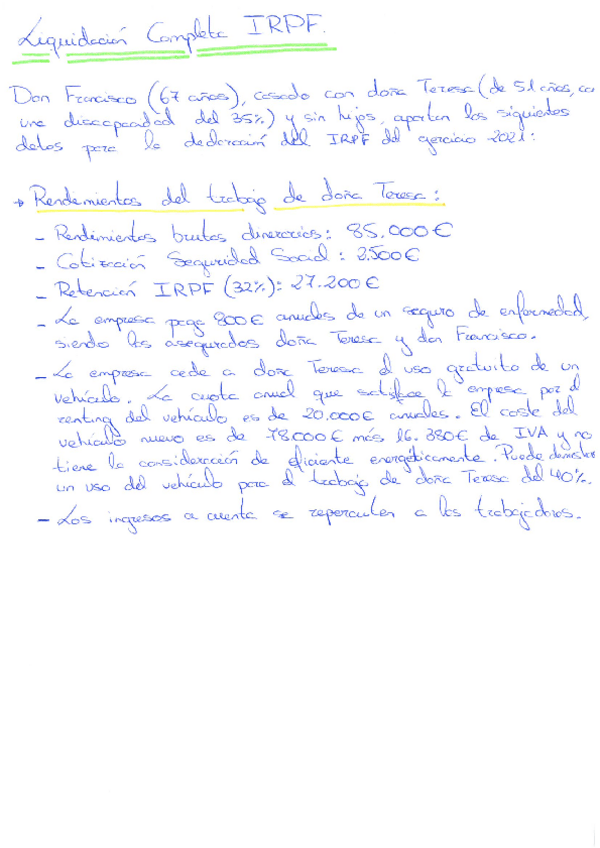 Liquidación Completa IRPF.
Don Francisco (67 años), casado con doña Teresa (de 51 años, co
una discapacidad del 35%) y sin hijos, aportan los siguientes
datos para la declaración del IRPF del ejercicio 2021:
→ Rendimientos del trabajo de doña Teresa:
- Rendimientos brutos dinerarios: 85.000€
- Cotización Seguridad Social: 2.500€
- Retención IRPF (32%): 27.200€
- La empresa paga 800€ anuales de un seguro de enfermedad,
siendo los asegurados doña Teresa y don Francisco.
- La empresa cede a doña Teresa el uso gratuito de un
vehículo. La cuota anual que satisface la empresa por el
renting del vehículo es de 20.000€ anuales. El coste del
vehículo nuevo es de 78.000€ más 16.380€ de IVA y no
tiene la consideración de eficiente energéticamente. Puede
un uso del vehículo para el trabajo de doña Teresa del 40%.
- Los ingresos a cuenta se repercuten a los trabajadores.